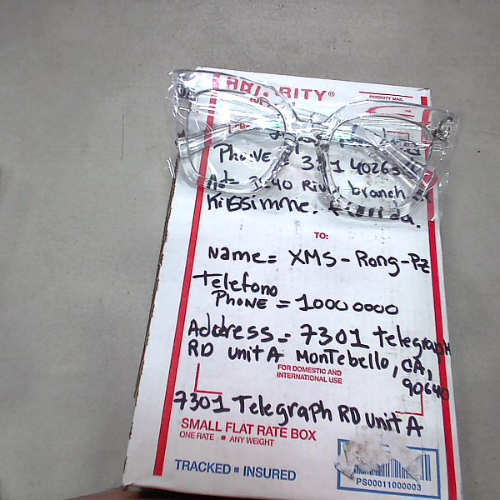 PRIORITY®
PRIORITY MAIL
Phone = 321 40263
3040 River branch
Kissimme. Florida.
TO:
Name = XMS-Rong-Pz
Telefono
PHONE = 10000000
Address = 7301 telegraph
RD unit A MonTebello, CA,
90640
FOR DOMESTIC AND
INTERNATIONAL USE
7301 Telegraph RD unit A
SMALL FLAT RATE BOX
ONE RATE ■ ANY WEIGHT
TRACKED ■ INSURED
PS00011000003